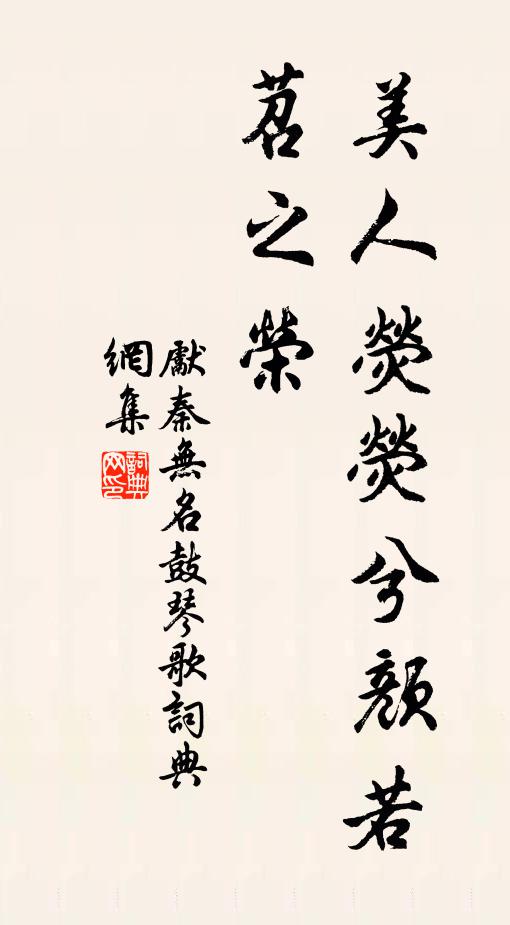 美人熒熒兮顏若
苕之榮
獻秦無名鼓琴歌詞典
網集
詞典
网印